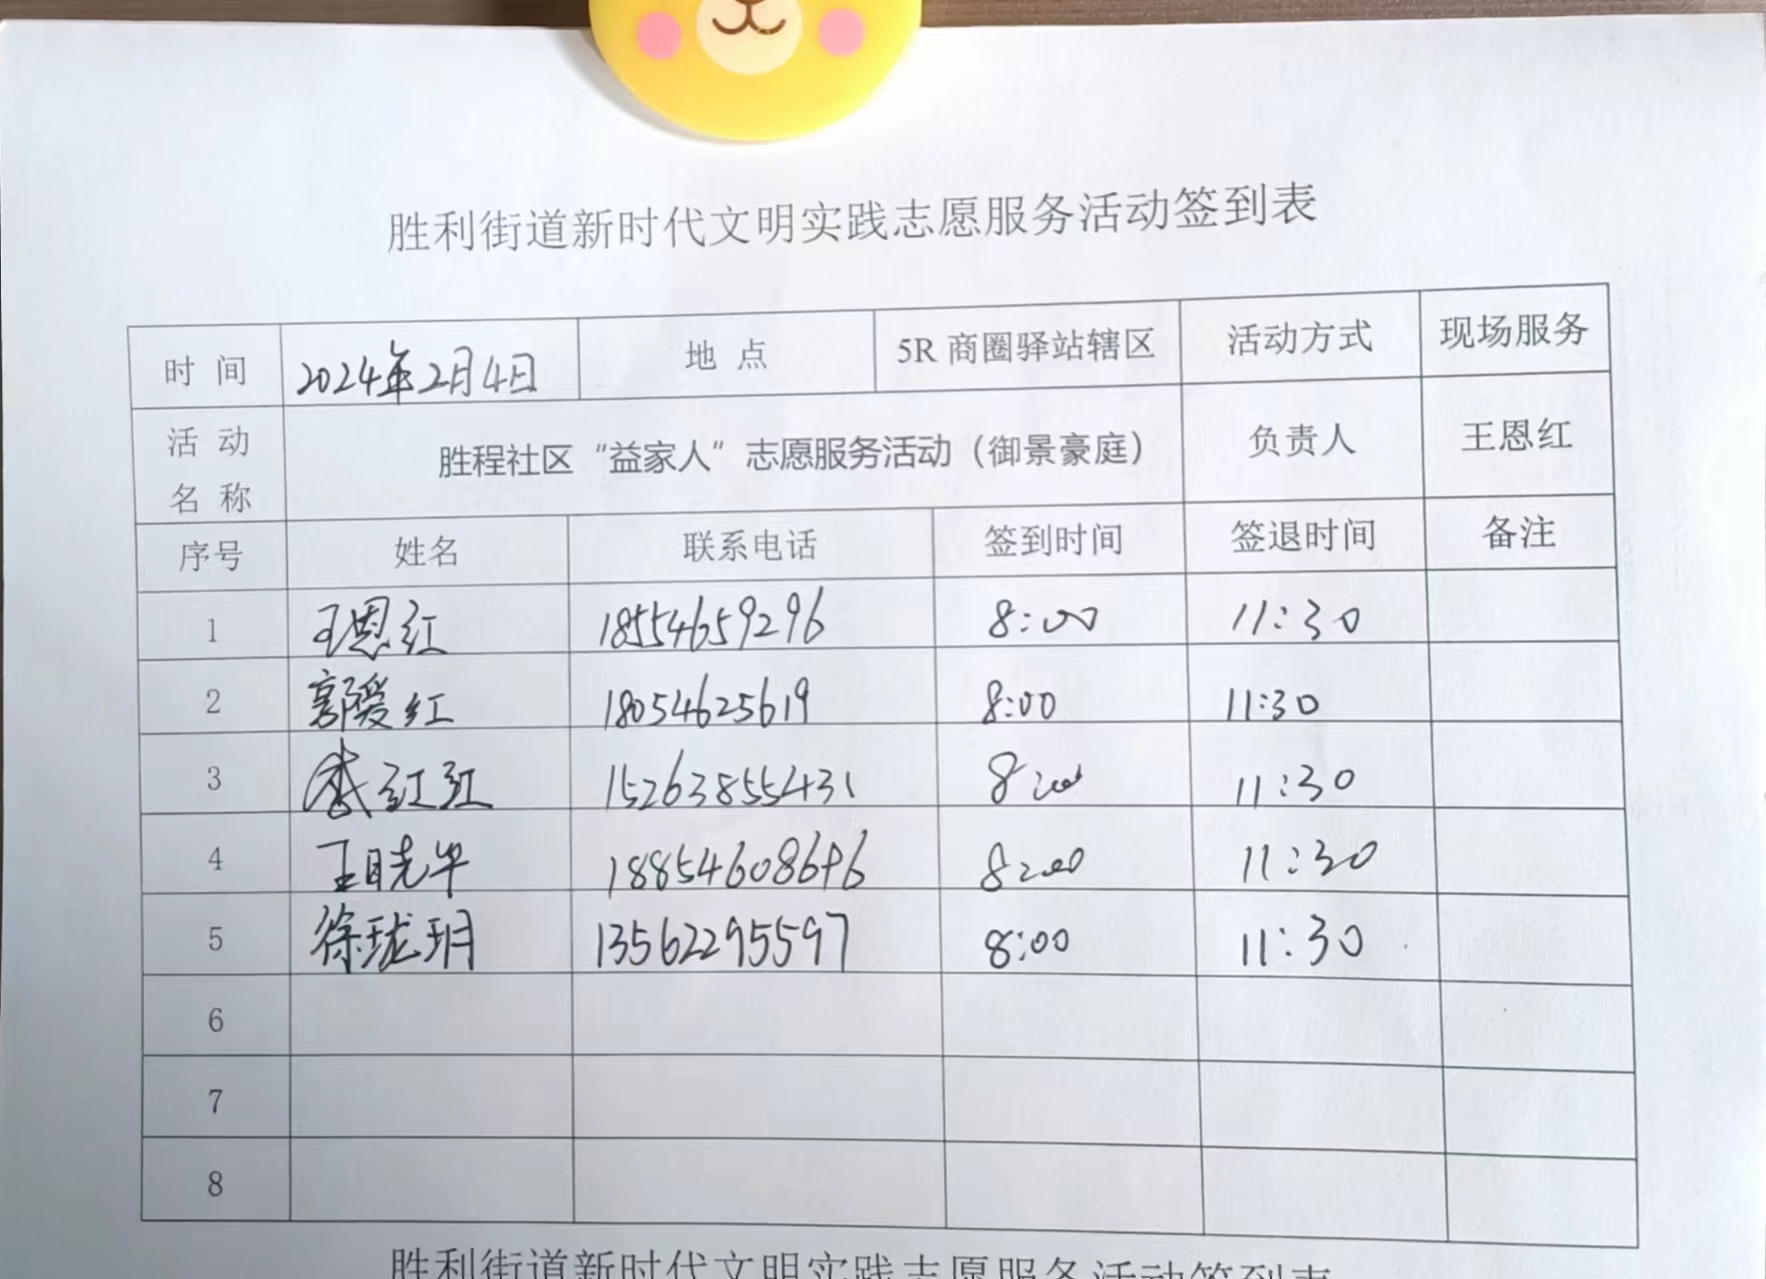 胜利街道新时代文明实践志愿服务活动签到表
时 间 2024年2月4日 地 点 5R 商圈驿站辖区 活动方式 现场服务
活 动 名 称 胜程社区“益家人”志愿服务活动（御景豪庭） 负责人 王恩红
序号 姓名 联系电话 签到时间 签退时间 备注
1 王恩红 18554659296 8:00 11:30
2 郭爱红 18054625619 8:00 11:30
3 红红 15263855431 8:00 11:30
4 王晓华 8:00 11:30
5 徐珑玥 13562295597 8:00 11:30
6
7
8
胜利街道新时代文明实践志愿服务活动签到表